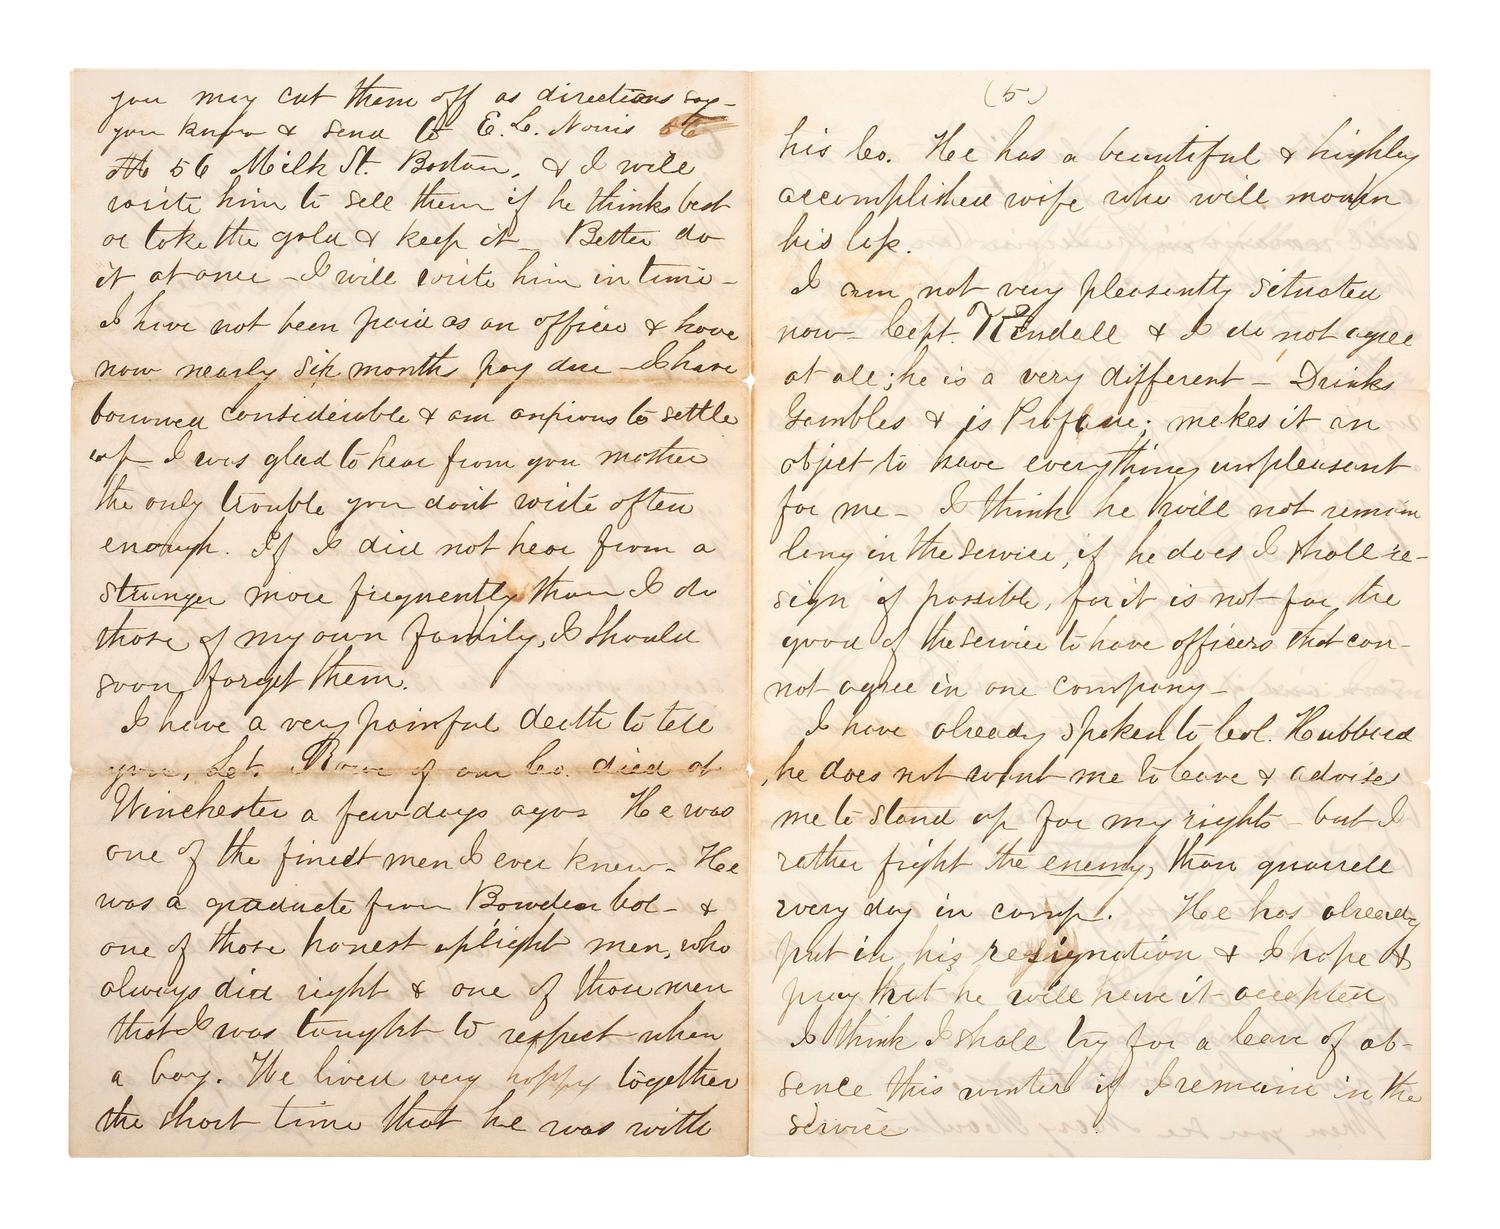 you may cut them off as directions say–
you know & send to E. L. Norris
No 56 Milk St. Boston, & I will
write him to sell them if he thinks best
or take the gold & keep it – Better do
it at once – I will write him in time –
I have not been paid as an officer & have
now nearly six months pay due – I have
borrowed considerable & am anxious to settle
up – I was glad to hear from you mother
the only trouble you dont write often
enough. If I did not hear from a
stranger more frequently than I do
those of my own family, I should
soon forget them.
I have a very painful death to tell
you, Lt. Rowe of our Co. died at
Winchester a few days ago He was
one of the finest men I ever knew – He
was a graduate from Bowden Col – &
one of those honest uplight men, who
always did right & one of those men
that I was taught to respect when
a boy. We lived very happy together
the short time that he was with
(5)
his Co. He has a beautiful & highly
accomplished wife who will mourn
his loss.
I am not very pleasantly situated
now – Capt. Kendall & I do not agree
at all; he is a very different – Drinks
Gambles & is Profane; makes it an
object to have everything unpleasant
for me – I think he will not remain
long in the service, if he does I shall re-
sign if possible, for it is not for the
good of the service to have officers that can-
not agree in one company –
I have already spoken to Col. Hubbard
he does not want me to leave & advises
me to stand up for my rights – but I
rather fright the enemy, than quarrell
every day in camp. He has already
put in his resignation & I hope &
pray that he will have it accepted
I think I shall try for a leave of ab-
sence this winter if I remain in the
service